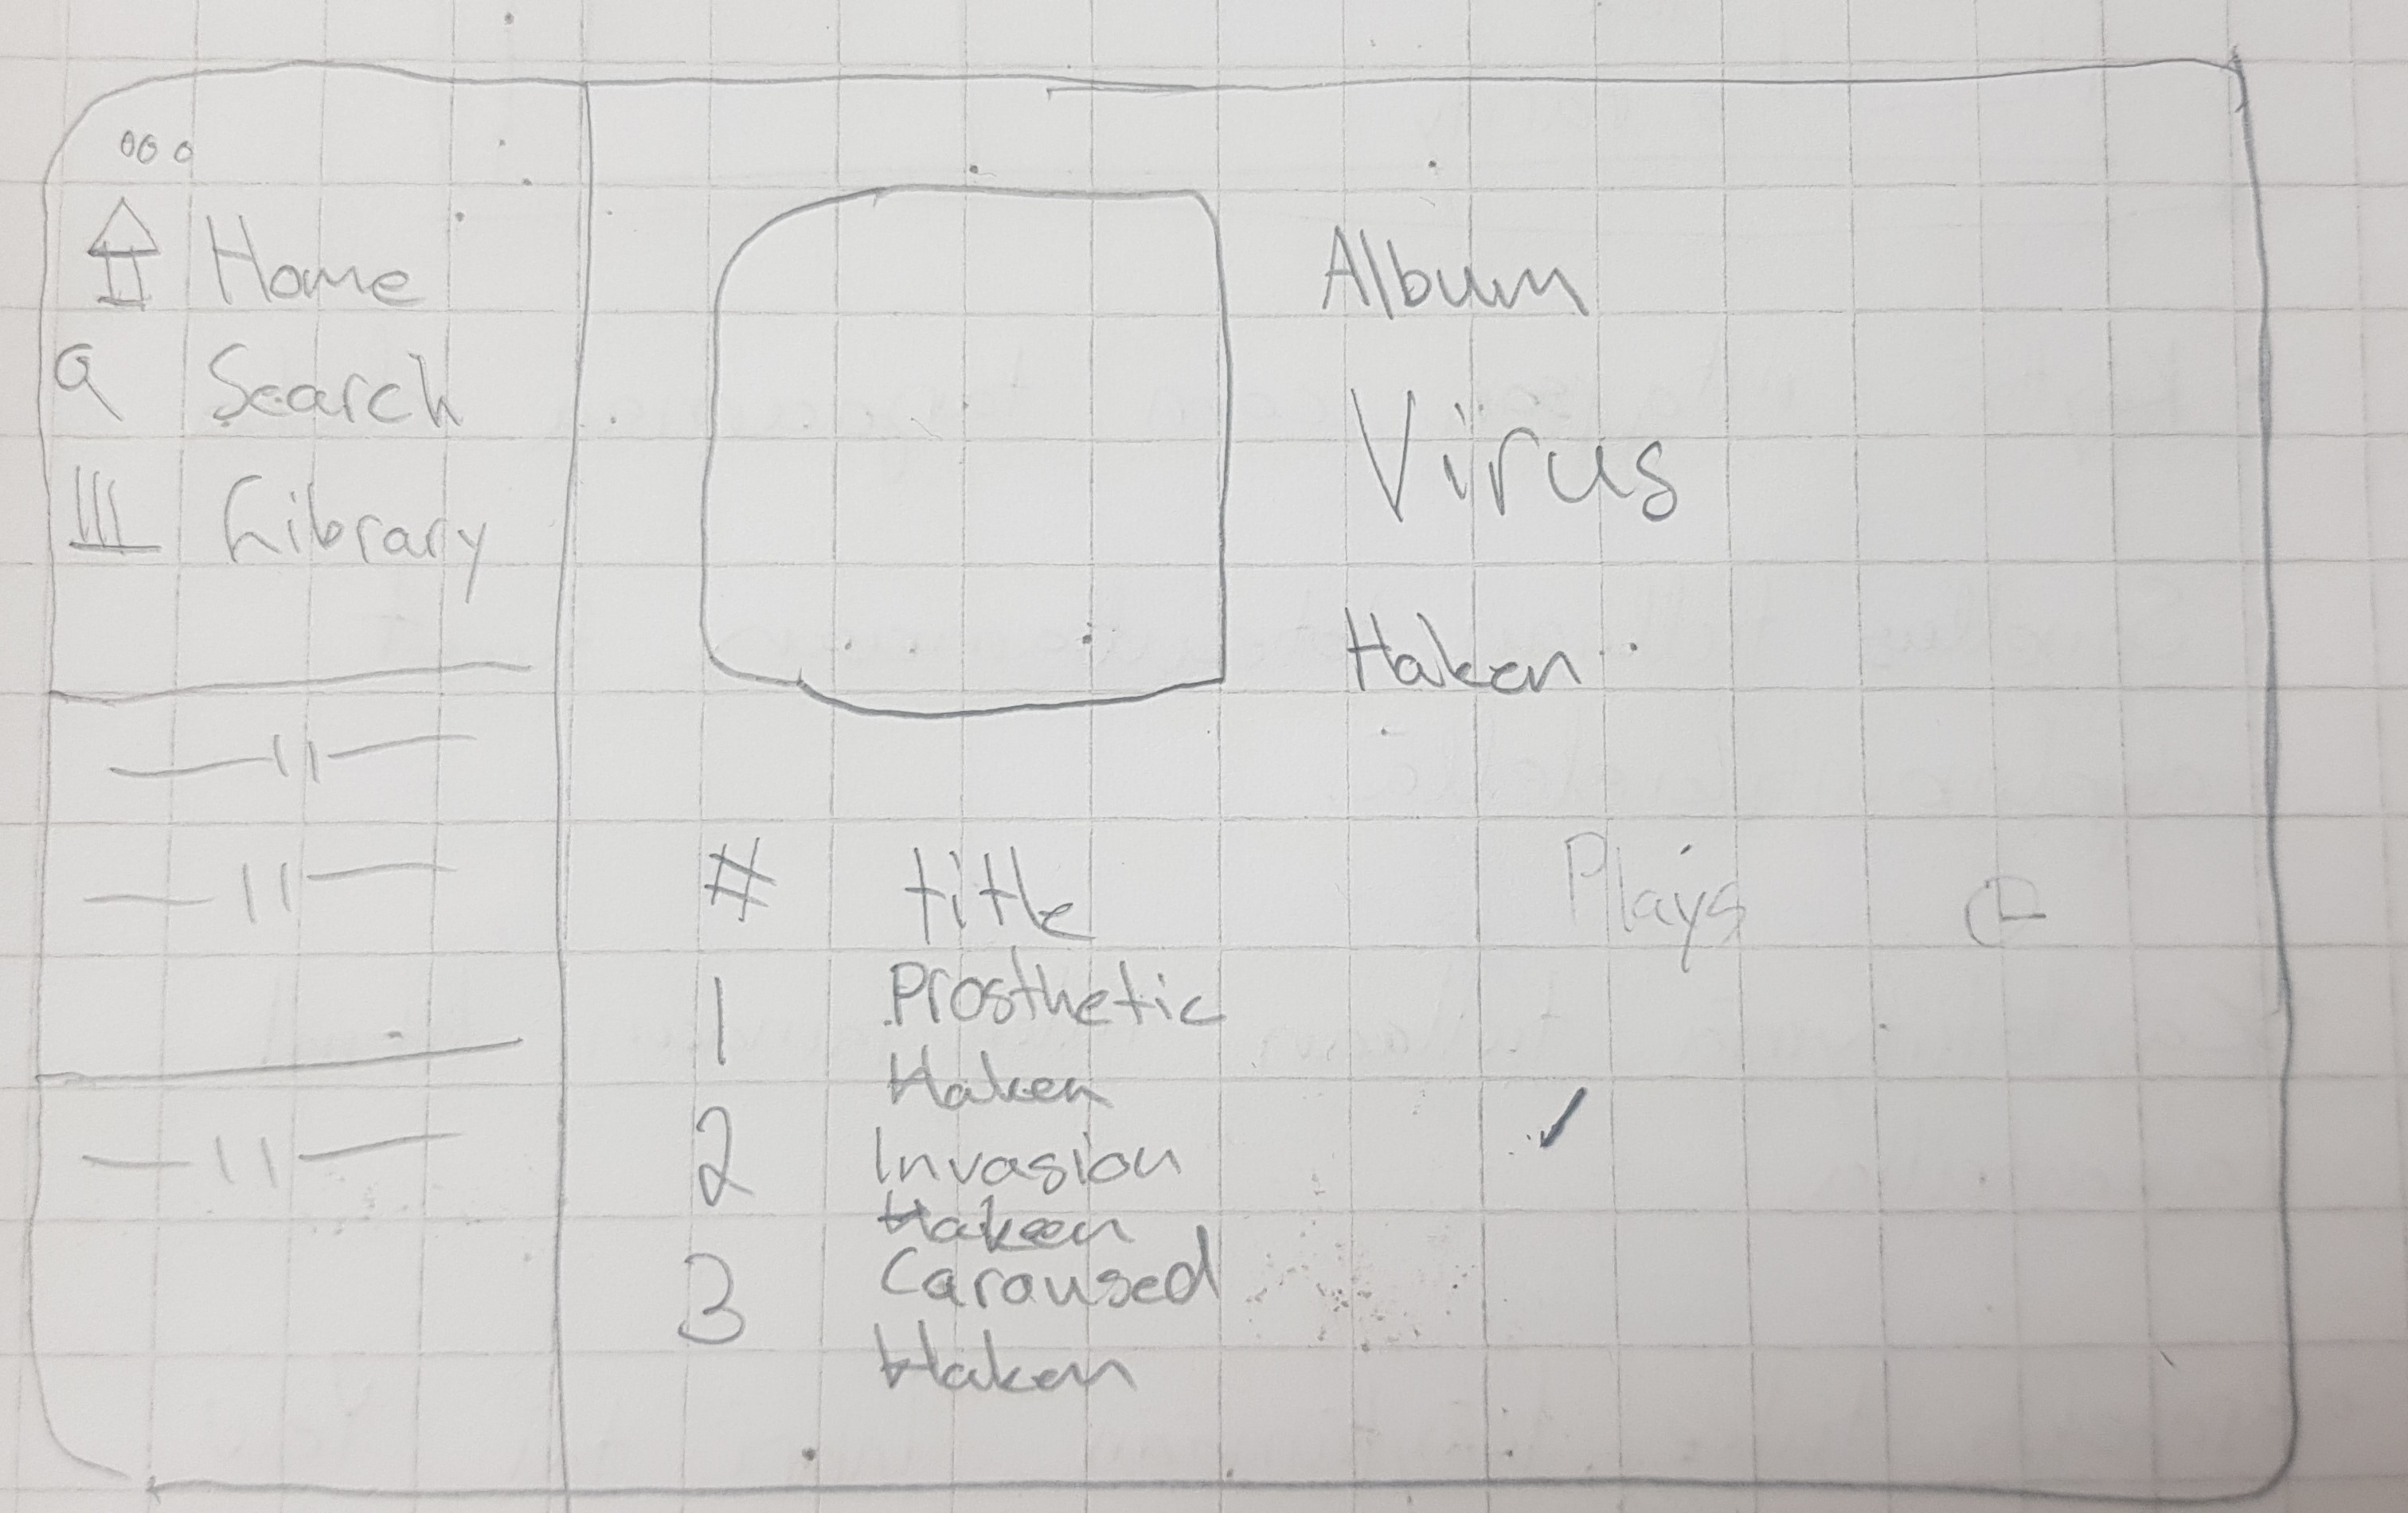 Home
Search
Library
Album
Virus
Haken
# title Plays
1 Prosthetic
Haken
2 Invasion
Hakeen
3 Caroused
Haken